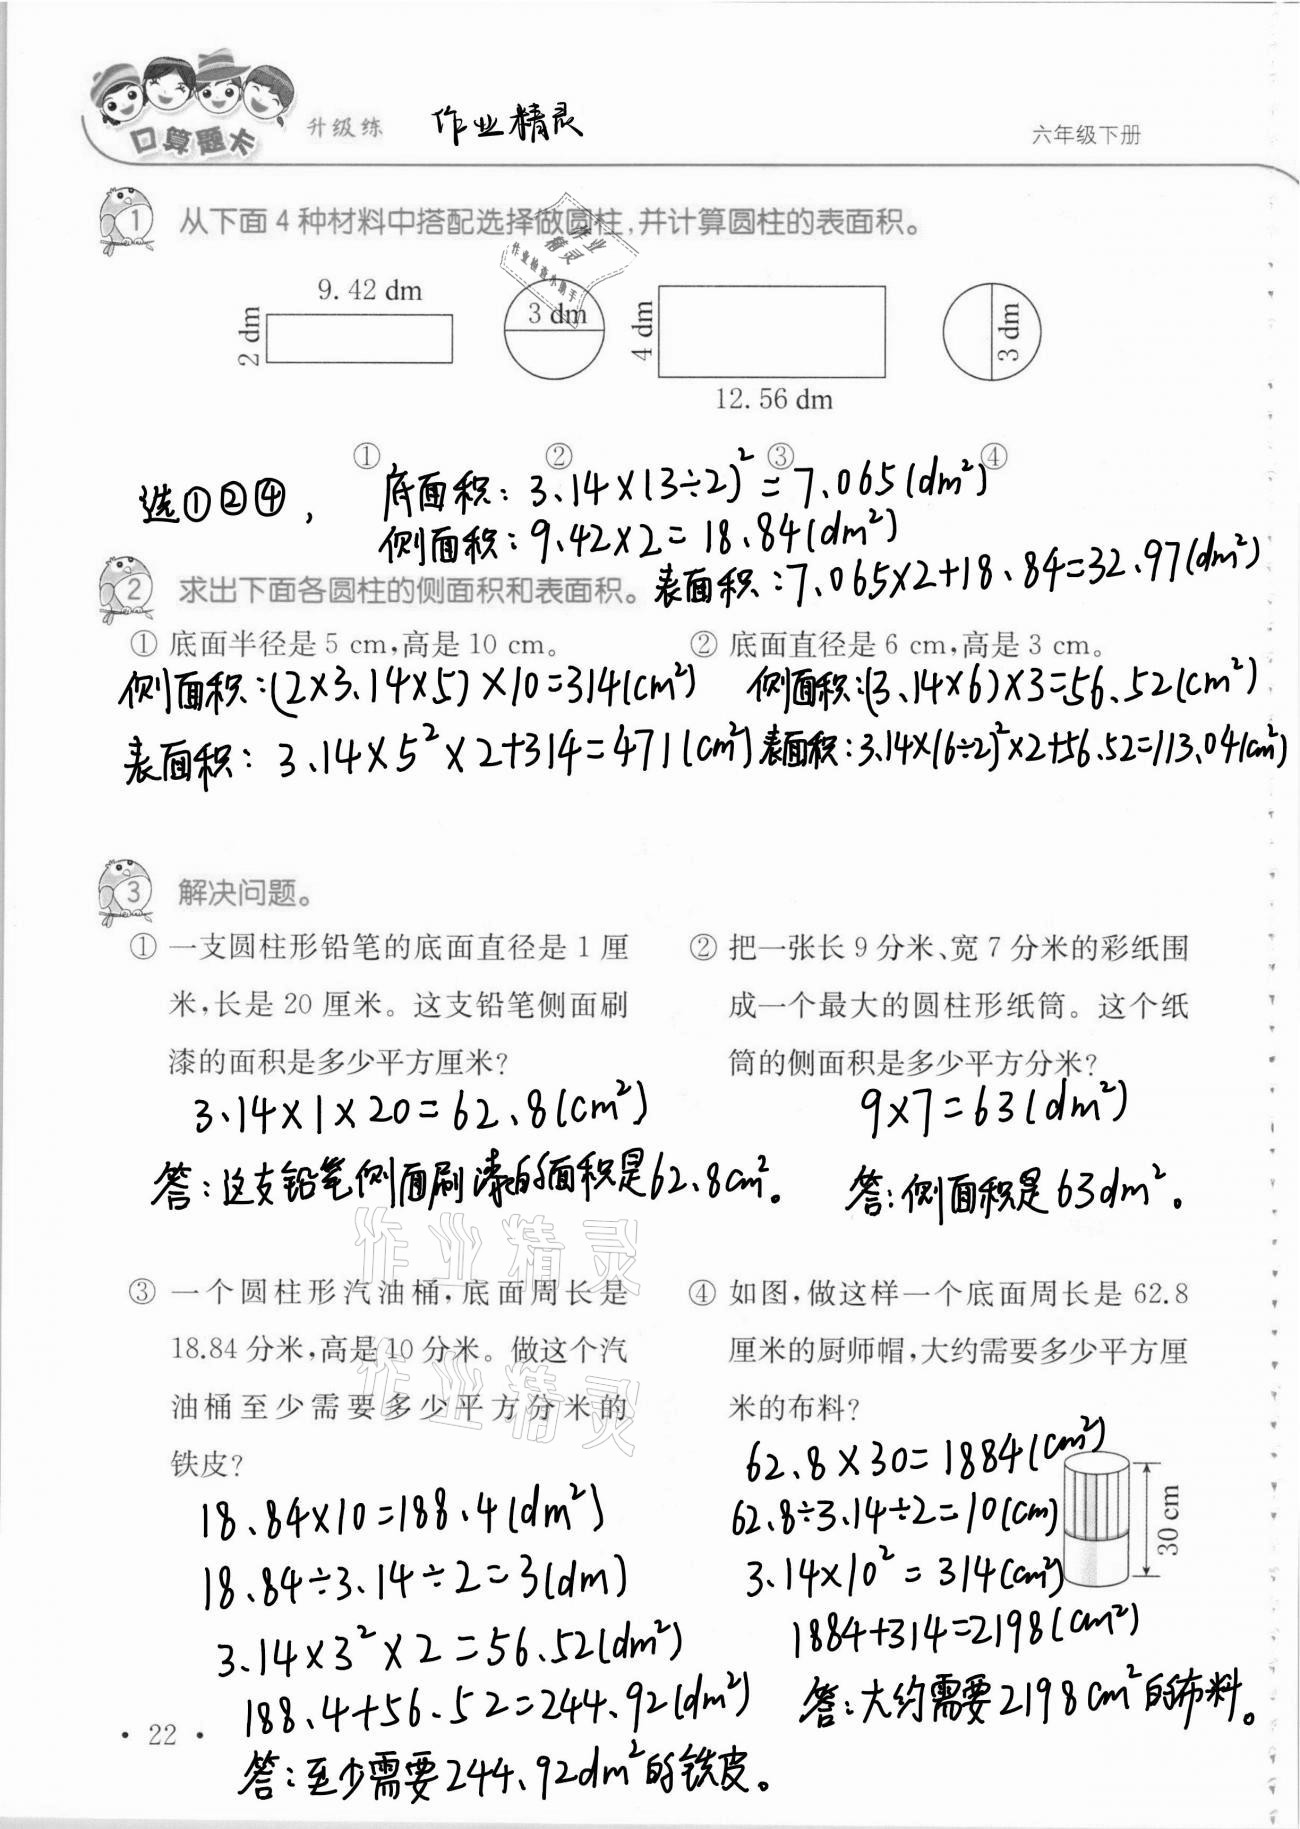 口算题卡
升级练
作业精灵
六年级下册
1 从下面4种材料中搭配选择做圆柱,并计算圆柱的表面积。
作业精灵
作业检查小助手
9.42 dm
2 dm
3 dm
4 dm
12.56 dm
3 dm
① ② ③ ④
选①②④,
底面积:3.14×(3÷2)²=7.065(dm²)
侧面积:9.42×2=18.84(dm²)
表面积:7.065×2+18.84=32.97(dm²)
2 求出下面各圆柱的侧面积和表面积。
① 底面半径是5 cm,高是10 cm。
侧面积:(2×3.14×5)×10=314(cm²)
表面积:3.14×5²×2+314=471(cm²)
② 底面直径是6 cm,高是3 cm。
侧面积:(3.14×6)×3=56.52(cm²)
表面积:3.14×(6÷2)²×2+56.52=113.04(cm²)
3 解决问题。
① 一支圆柱形铅笔的底面直径是1厘
米,长是20厘米。这支铅笔侧面刷
漆的面积是多少平方厘米?
3.14×1×20=62.8(cm²)
答:这支铅笔侧面刷漆的面积是62.8cm²。
② 把一张长9分米、宽7分米的彩纸围
成一个最大的圆柱形纸筒。这个纸
筒的侧面积是多少平方分米?
9×7=63(dm²)
答:侧面积是63dm²。
作业精灵
③ 一个圆柱形汽油桶,底面周长是
18.84分米,高是10分米。做这个汽
油桶至少需要多少平方分米的
铁皮?
作业精灵
18.84×10=188.4(dm²)
18.84÷3.14÷2=3(dm)
3.14×3²×2=56.52(dm²)
188.4+56.52=244.92(dm²)
答:至少需要244.92dm²的铁皮。
④ 如图,做这样一个底面周长是62.8
厘米的厨师帽,大约需要多少平方厘
米的布料?
62.8×30=1884(cm²)
62.8÷3.14÷2=10(cm)
3.14×10²=314(cm²)
1884+314=2198(cm²)
答:大约需要2198cm²的布料。
30 cm
· 22 ·